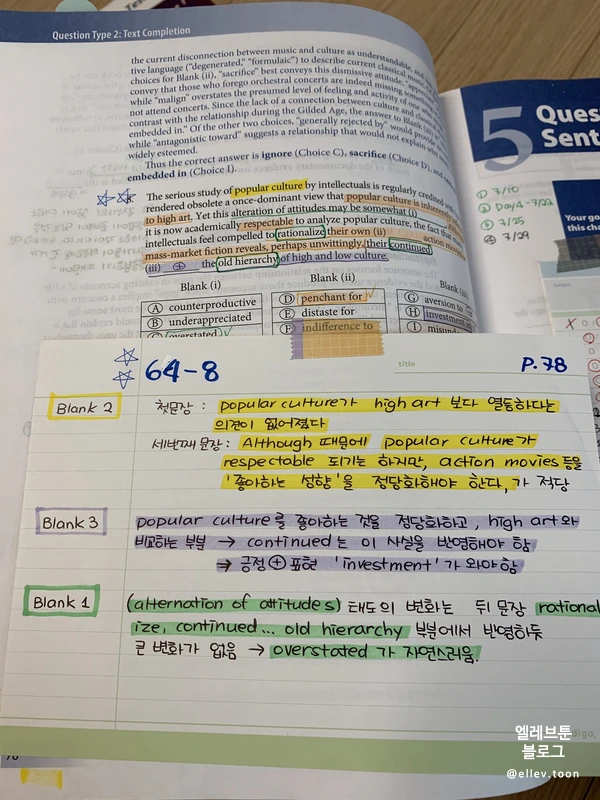 Question Type 2: Text Completion
the current disconnection between music and culture as understandable, and
tive language ("degenerated," "formulaic") to describe current classical
choices for Blank (ii), "sacrifice" best conveys this dismissive attitude,
convey that those who forego orchestral concerts are indeed missing
while "malign" overstates the presumed level of feeling and activity of
not attend concerts. Since the lack of a connection between culture and
contrast with the relationship during the Gilded Age, the answer to Blank
embedded in." Of the other two choices, "generally rejected by" would
while "antagonistic toward" suggests a relationship that would not explain why
widely esteemed.
Thus the correct answer is ignore (Choice C), sacrifice (Choice D), and
embedded in (Choice I).
8. The serious study of popular culture by intellectuals is regularly credited
rendered obsolete a once-dominant view that popular culture is inherently
to high art. Yet this alteration of attitudes may be somewhat (i)
it is now academically respectable to analyze popular culture, the fact that
intellectuals feel compelled to rationalize their own (ii) action movies
mass-market fiction reveals, perhaps unwittingly, their continued
(iii) ⊕ the old hierarchy of high and low culture.
Blank (i) Blank (ii) Blank (iii)
A counterproductive D penchant for G aversion to
B underappreciated E distaste for H investment in
C overstated F indifference to I
5 Ques
Sent
① 7/10
② Day4-7/22
③ 7/25
④ 7/29
Your goa
this cha
64-8 title P.78
Blank 2 첫문장 : popular culture가 high art 보다 열등하다는
의견이 없어졌다
세번째 문장 : Although 때문에 popular culture가
respectable 되기는 하지만, action movies 등을
'좋아하는 성향'을 정당화해야 한다, 가 적당
Blank 3 popular culture를 좋아하는 것을 정당화하고, high art와
비교하는 부분 → continued는 이 사실을 반영해야 함
→ 긍정 ⊕ 표현 'investment'가 와야함
Blank 1 (alternation of attitudes) 태도의 변화는 뒤 문장 rational
ize, continued... old hierarchy 부분에서 반영하듯
큰 변화가 없음 → overstated 가 자연스러움.
엘레브툰
블로그
@ellev.toon